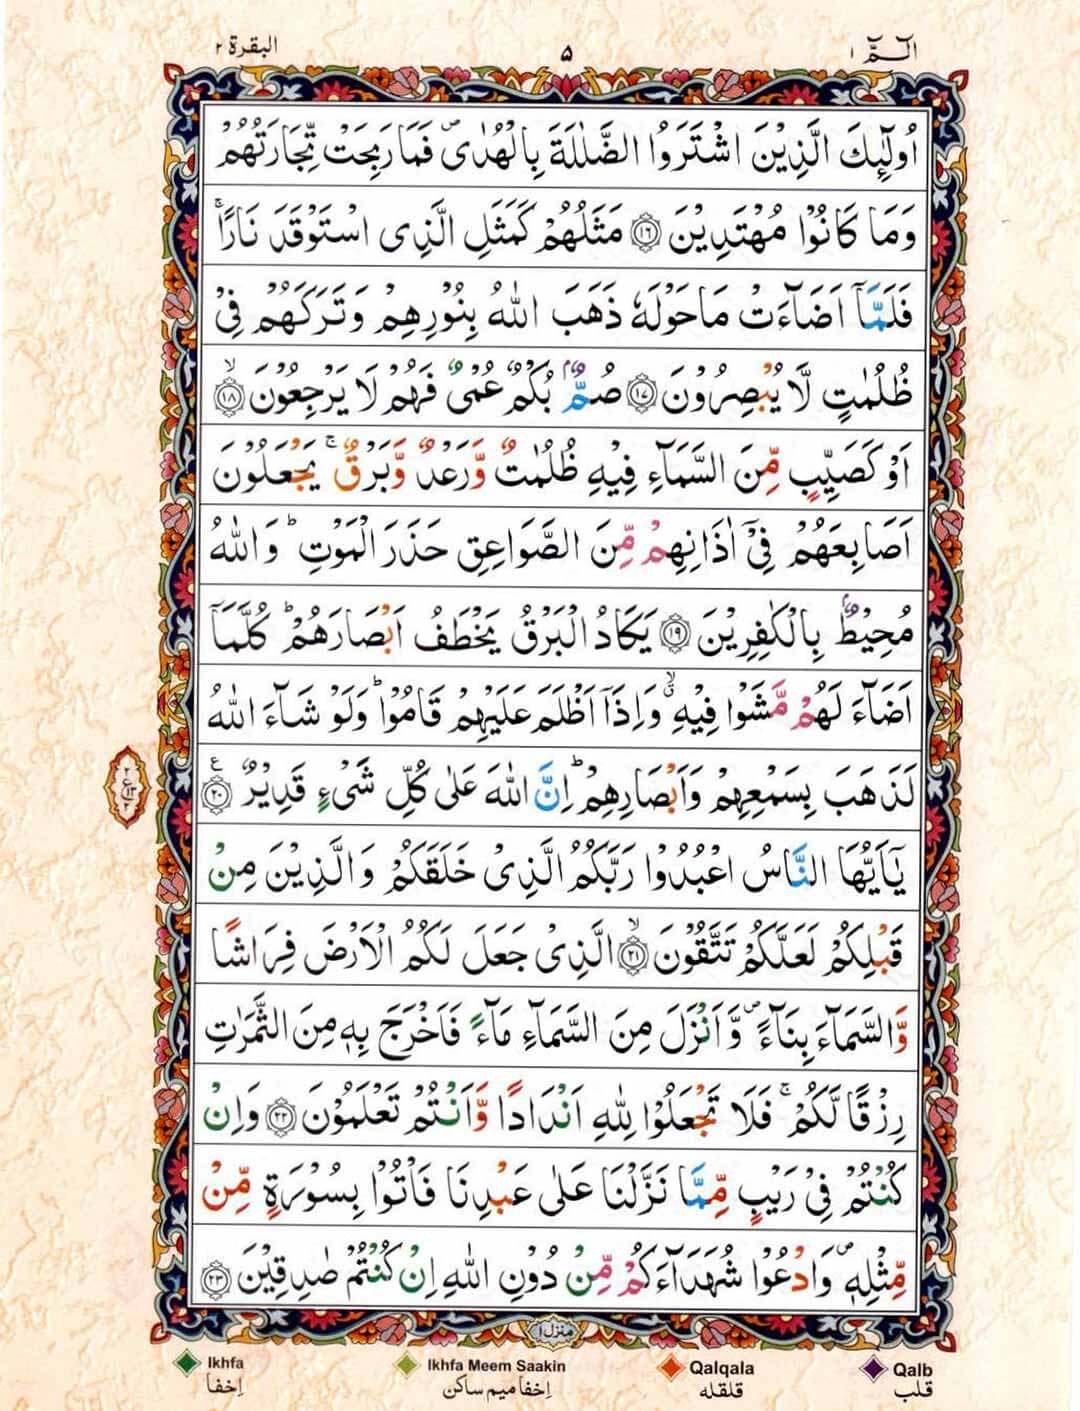 الٓـمّٓ ١ ٥ البقرة ٢
اُولٰٓئِكَ الَّذِیْنَ اشْتَرَوُا الضَّلٰلَةَ بِالْهُدٰی۪ فَمَا رَبِحَتْ تِّجَارَتُهُمْ
وَمَا كَانُوْا مُهْتَدِیْنَ ۝۱۶ مَثَلُهُمْ كَمَثَلِ الَّذِی اسْتَوْقَدَ نَارًا ۚ
فَلَمَّاۤ اَضَآءَتْ مَا حَوْلَهٗ ذَهَبَ اللّٰهُ بِنُوْرِهِمْ وَتَرَكَهُمْ فِیْ
ظُلُمٰتٍ لَّا یُبْصِرُوْنَ ۝۱۷ صُمٌّۢ بُكْمٌ عُمْیٌ فَهُمْ لَا یَرْجِعُوْنَ ۝۱۸ۙ
اَوْ كَصَیِّبٍ مِّنَ السَّمَآءِ فِیْهِ ظُلُمٰتٌ وَّرَعْدٌ وَّبَرْقٌ ۚ یَجْعَلُوْنَ
اَصَابِعَهُمْ فِیْۤ اٰذَانِهِمْ مِّنَ الصَّوَاعِقِ حَذَرَ الْمَوْتِ ؕ وَاللّٰهُ
مُحِیْطٌۢ بِالْكٰفِرِیْنَ ۝۱۹ یَكَادُ الْبَرْقُ یَخْطَفُ اَبْصَارَهُمْ ؕ كُلَّمَاۤ
اَضَآءَ لَهُمْ مَّشَوْا فِیْهِ ۙۗ وَاِذَاۤ اَظْلَمَ عَلَیْهِمْ قَامُوْا ؕ وَلَوْ شَآءَ اللّٰهُ
لَذَهَبَ بِسَمْعِهِمْ وَاَبْصَارِهِمْ ؕ اِنَّ اللّٰهَ عَلٰی كُلِّ شَیْءٍ قَدِیْرٌ ۝۲۰ ع
یٰۤاَیُّهَا النَّاسُ اعْبُدُوْا رَبَّكُمُ الَّذِیْ خَلَقَكُمْ وَالَّذِیْنَ مِنْ
قَبْلِكُمْ لَعَلَّكُمْ تَتَّقُوْنَ ۝۲۱ۙ الَّذِیْ جَعَلَ لَكُمُ الْاَرْضَ فِرَاشًا
وَّالسَّمَآءَ بِنَآءً ۪ وَّاَنْزَلَ مِنَ السَّمَآءِ مَآءً فَاَخْرَجَ بِهٖ مِنَ الثَّمَرٰتِ
رِزْقًا لَّكُمْ ۚ فَلَا تَجْعَلُوْا لِلّٰهِ اَنْدَادًا وَّاَنْتُمْ تَعْلَمُوْنَ ۝۲۲ وَاِنْ
كُنْتُمْ فِیْ رَیْبٍ مِّمَّا نَزَّلْنَا عَلٰی عَبْدِنَا فَاْتُوْا بِسُوْرَةٍ مِّنْ
مِّثْلِهٖ ۪ وَادْعُوْا شُهَدَآءَكُمْ مِّنْ دُوْنِ اللّٰهِ اِنْ كُنْتُمْ صٰدِقِیْنَ ۝۲۳
منزل ١
Ikhfa Ikhfa Meem Saakin Qalqala Qalb
اِخفا اِخفا میم ساکن قلقله قلب